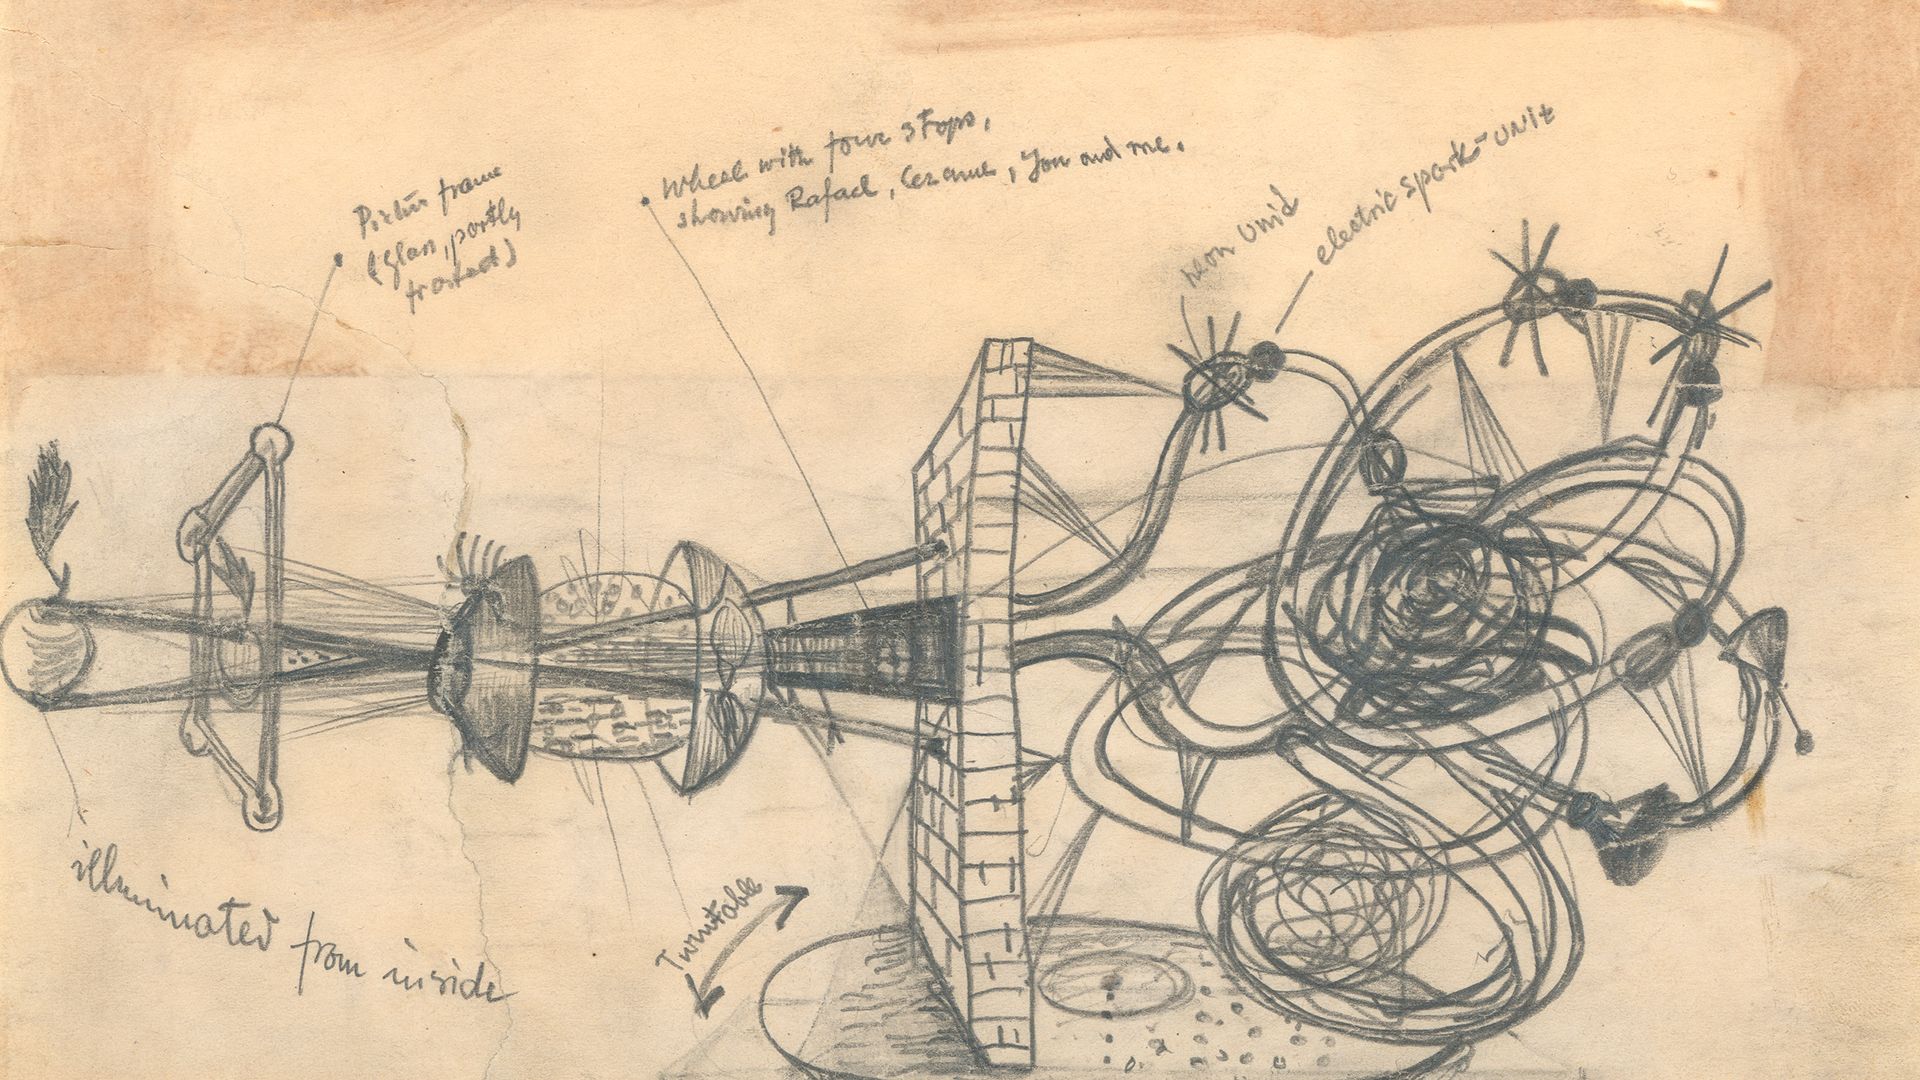 Pictur frame
(glass, partly
frosted)
Wheel with four stops,
showing Rafael, Cezanne, You and me.
neon unid
electric spark-unit
illuminated from inside
Turntable